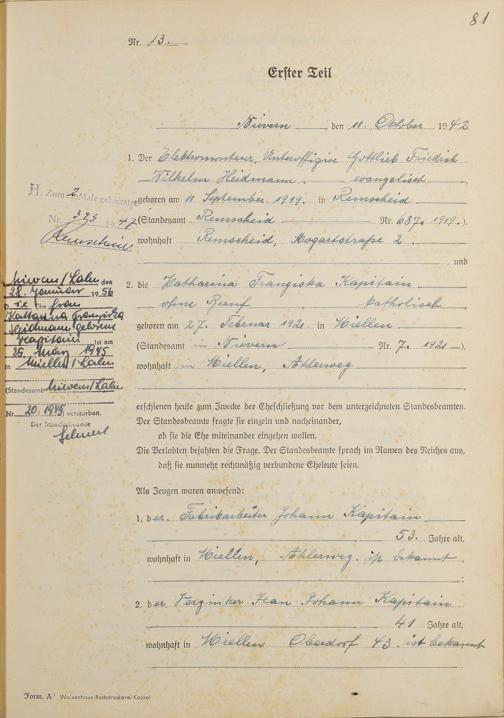 81
Nr. 13.
Erster Teil
Nievern, den 11. October 1942
1. Der Elektromonteur, Unteroffizier Gottlieb Friedrich
Wilhelm Heidmann evangelisch
geboren am 11 September 1919. in Remscheid
(Standesamt Remscheid Nr. 637. 1919.)
wohnhaft Remscheid, Mozartstraße 2
, und
2. die Katharina Franziska Kapitain
ohne Beruf katholisch
geboren am 27. Februar 1921. in Miellen
(Standesamt in Nievern Nr. 7. 1921)
wohnhaft in Miellen, Ahlerweg
H. Zum 2. Male geheiratet
Nr. 373 1947
Remscheid
Nievern/Lahn den
28. Januar 1956
Die Ehefrau
Katharina Franziska
Heidmann geborene
Kapitain ist am
25. März 1945
in Miellen/Lahn
(Standesamt Nievern/Lahn
Nr. 20.1945) verstorben.
Der Standesbeamte
erschienen heute zum Zwecke der Eheschließung vor dem unterzeichneten Standesbeamten.
Der Standesbeamte fragte sie einzeln und nacheinander,
ob sie die Ehe miteinander eingehen wollen.
Die Verlobten bejahten die Frage. Der Standesbeamte sprach im Namen des Reiches aus,
daß sie nunmehr rechtmäßig verbundene Eheleute seien.
Als Zeugen waren anwesend:
1. der Fabrikarbeiter Johann Kapitain
53. Jahre alt,
wohnhaft in Miellen, Ahlerweg. ist bekannt
2. der Verzinker Jean Johann Kapitain
41 Jahre alt,
wohnhaft in Miellen Oberdorf 43. ist bekannt
Form. A¹ Waisenhaus-Buchdruckerei Kassel